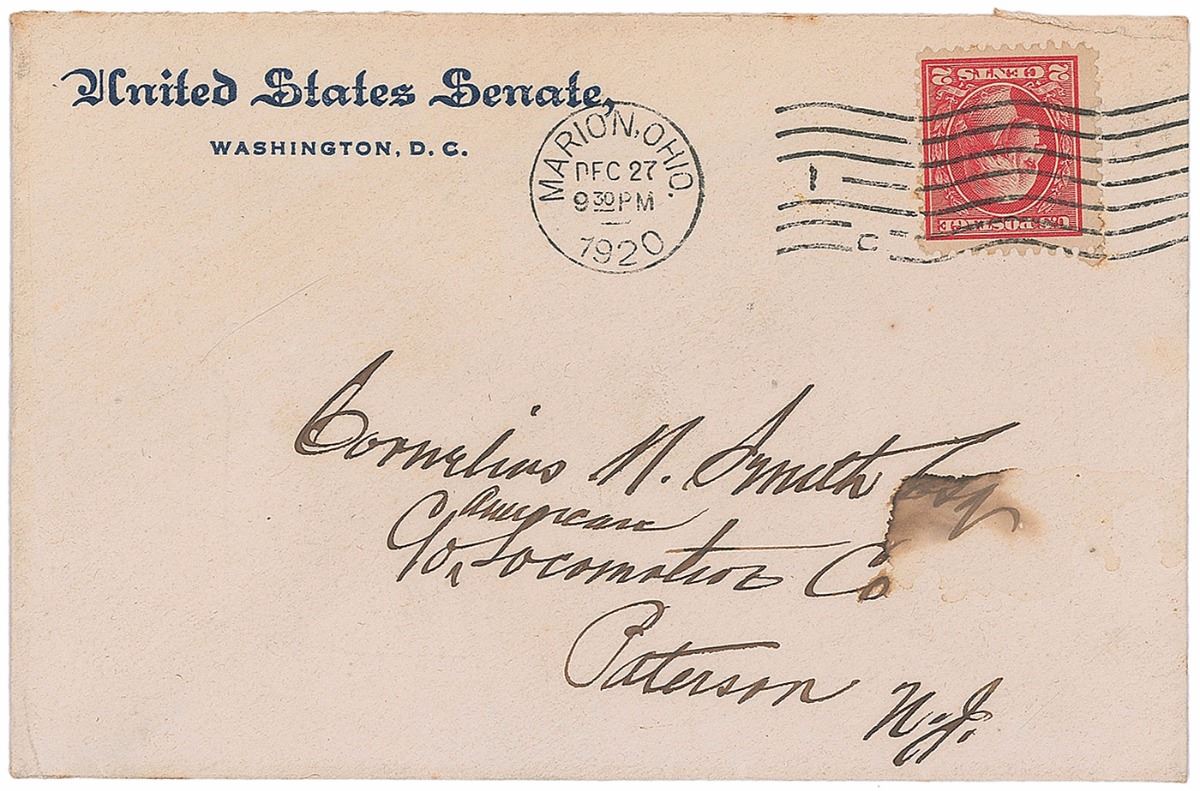 United States Senate,
WASHINGTON, D. C.
MARION, OHIO.
DEC 27
9 30 PM
1920
1
C
2 CENTS 2
U.S. POSTAGE
Cornelius N. Smith Esq
American
C/o, Locomotive Co
Paterson
N.J.